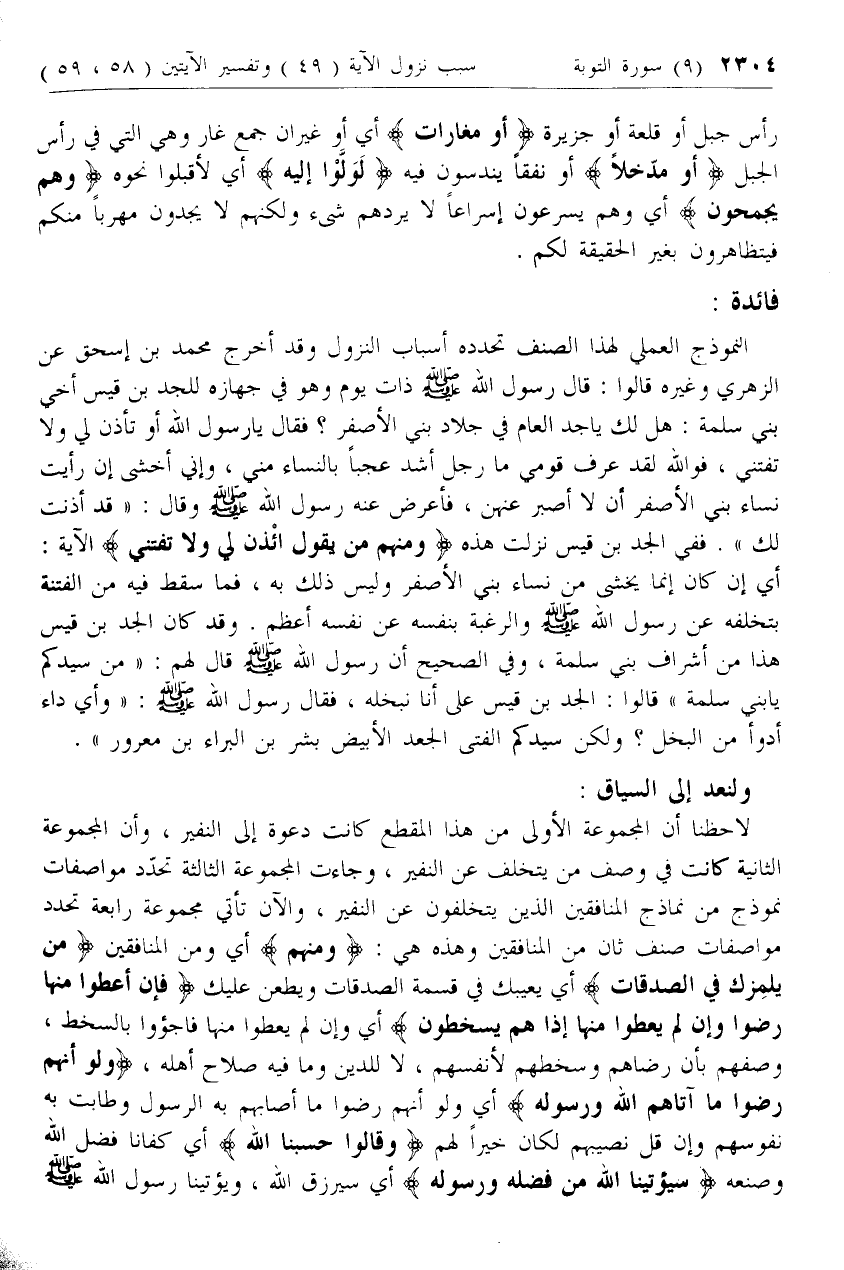 ٢٣٠٤ (٩) سورة التوبة سبب نزول الآية ( ٤٩ ) وتفسير الآيتين ( ٥٨ ، ٥٩ )
رأس جبل أو قلعة أو جزيرة ﴿ أو مغارات ﴾ أي أو غيران جمع غار وهي التي في رأس
الجبل ﴿ أو مدّخلاً ﴾ أو نفقاً يندسون فيه ﴿ لَوَلَّوْا إليه ﴾ أي لأقبلوا نحوه ﴿ وهم
يجمحون ﴾ أي وهم يسرعون إسراعاً لا يردهم شيء ولكنهم لا يجدون مهرباً منكم
فيتظاهرون بغير الحقيقة لكم .
فائدة :
النموذج العملي لهذا الصنف تحدده أسباب النزول وقد أخرج محمد بن إسحق عن
الزهري وغيره قالوا : قال رسول الله ﷺ ذات يوم وهو في جهازه للجد بن قيس أخي
بني سلمة : هل لك ياجد العام في جلاد بني الأصفر ؟ فقال يارسول الله أو تأذن لي ولا
تفتني ، فوالله لقد عرف قومي ما رجل أشد عجباً بالنساء مني ، وإني أخشى إن رأيت
نساء بني الأصفر أن لا أصبر عنهن ، فأعرض عنه رسول الله ﷺ وقال : « قد أذنت
لك » . ففي الجد بن قيس نزلت هذه ﴿ ومنهم من يقول ائْذن لي ولا تفتني ﴾ الآية :
أي إن كان إنما يخشى من نساء بني الأصفر وليس ذلك به ، فما سقط فيه من الفتنة
بتخلفه عن رسول الله ﷺ والرغبة بنفسه عن نفسه أعظم . وقد كان الجد بن قيس
هذا من أشراف بني سلمة ، وفي الصحيح أن رسول الله ﷺ قال لهم : « من سيدكم
يابني سلمة » قالوا : الجد بن قيس على أنا نبخله ، فقال رسول الله ﷺ : « وأي داء
أدوأ من البخل ؟ ولكن سيدكم الفتى الجعد الأبيض بشر بن البراء بن معرور » .
ولنعد إلى السياق :
لاحظنا أن المجموعة الأولى من هذا المقطع كانت دعوة إلى النفير ، وأن المجموعة
الثانية كانت في وصف من يتخلف عن النفير ، وجاءت المجموعة الثالثة تحدّد مواصفات
نموذج من نماذج المنافقين الذين يتخلفون عن النفير ، والآن تأتي مجموعة رابعة تحدد
مواصفات صنف ثان من المنافقين وهذه هي : ﴿ ومنهم ﴾ أي ومن المنافقين ﴿ من
يلمِزك في الصدقات ﴾ أي يعيبك في قسمة الصدقات ويطعن عليك ﴿ فإن أعطوا منها
رضوا وإن لم يعطوا منها إذا هم يسخطون ﴾ أي وإن لم يعطوا منها فاجؤوا بالسخط ،
وصفهم بأن رضاهم وسخطهم لأنفسهم ، لا للدين وما فيه صلاح أهله ، ﴿ولو أنهم
رضوا ما آتاهم الله ورسوله ﴾ أي ولو أنهم رضوا ما أصابهم به الرسول وطابت به
نفوسهم وإن قل نصيبهم لكان خيراً لهم ﴿ وقالوا حسبنا الله ﴾ أي كفانا فضل الله
وصنعه ﴿ سيؤتينا الله من فضله ورسوله ﴾ أي سيرزق الله ، ويؤتينا رسول الله ﷺ